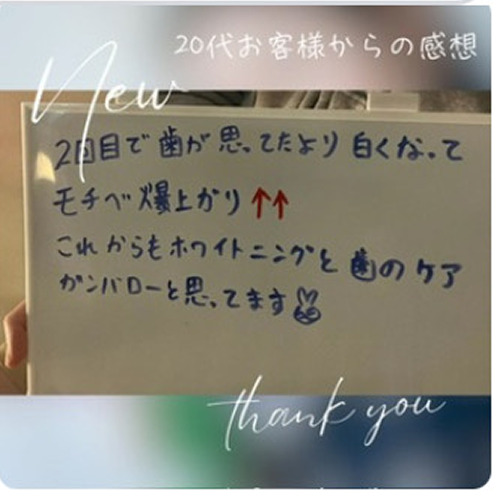 20代お客様からの感想
New
2回目で歯が思ってたより白くなって
モチベ爆上がり↑↑
これからもホワイトニングと歯のケア
ガンバローと思ってます
thank you